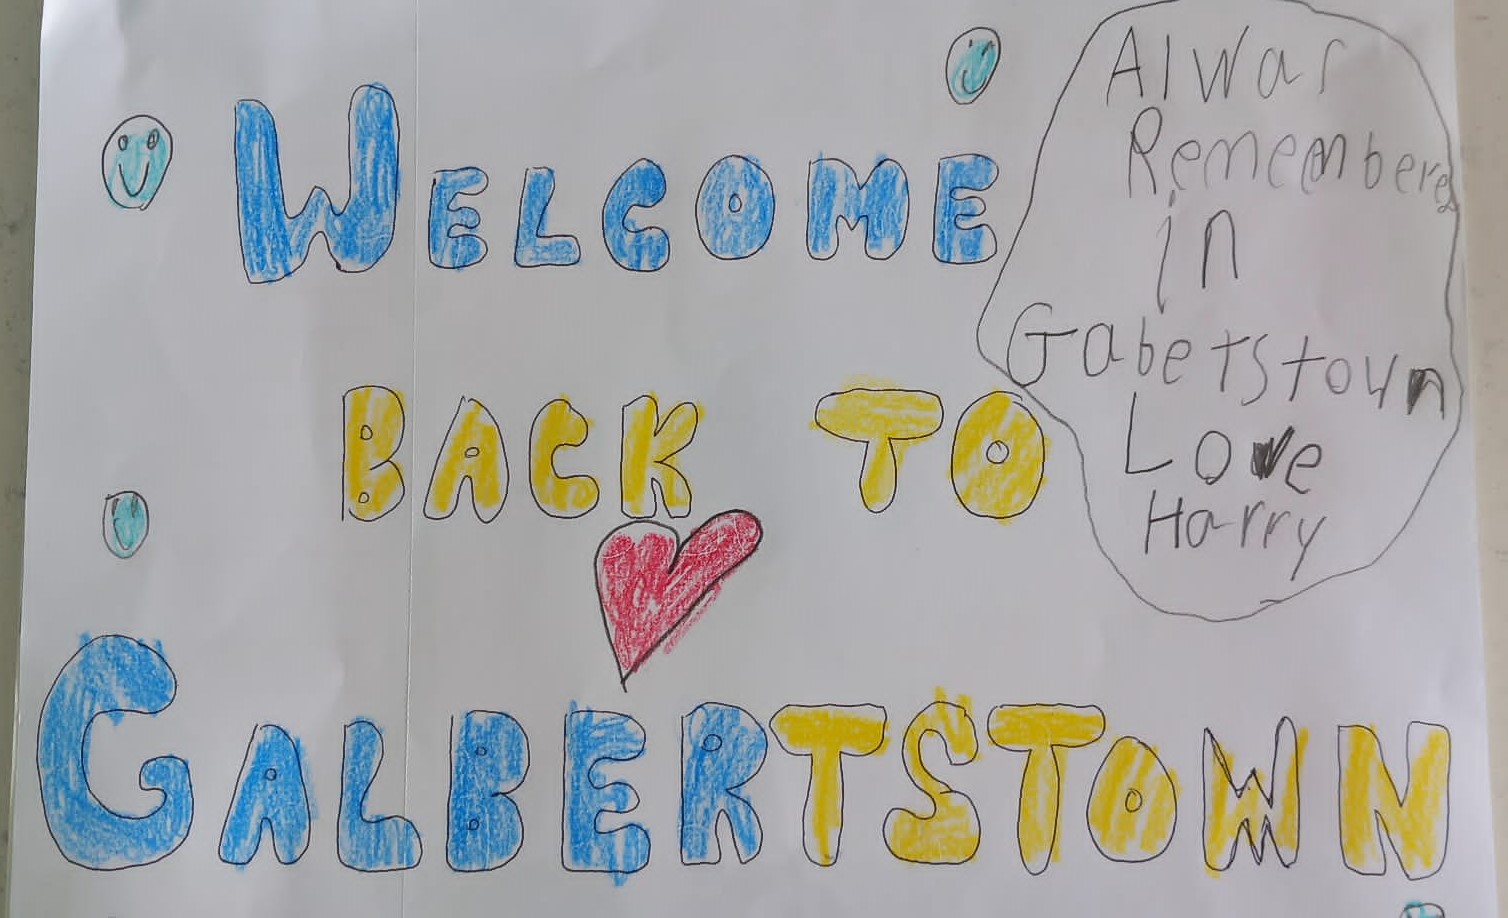 WELCOME
BACK TO
GALBERTSTOWN
Alwar
Remembere
in
Gabetstown
Love
Harry